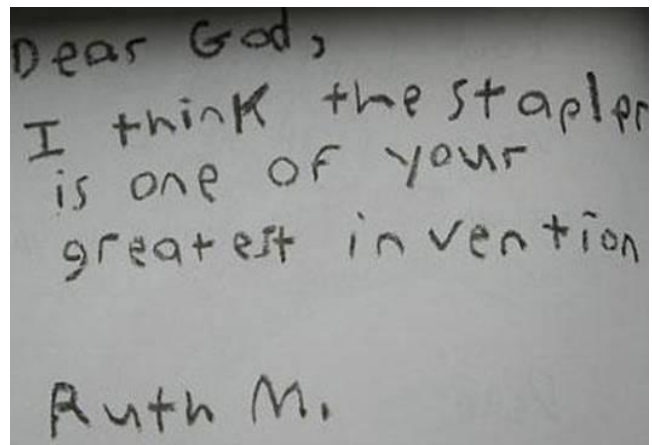 Dear God,
I think the stapler
is one of your
greatest invention
Ruth M.